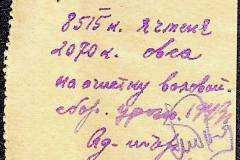 8515 к. ячменя
2070 к. овса
на очистку валовой
сбор. урож. 1949